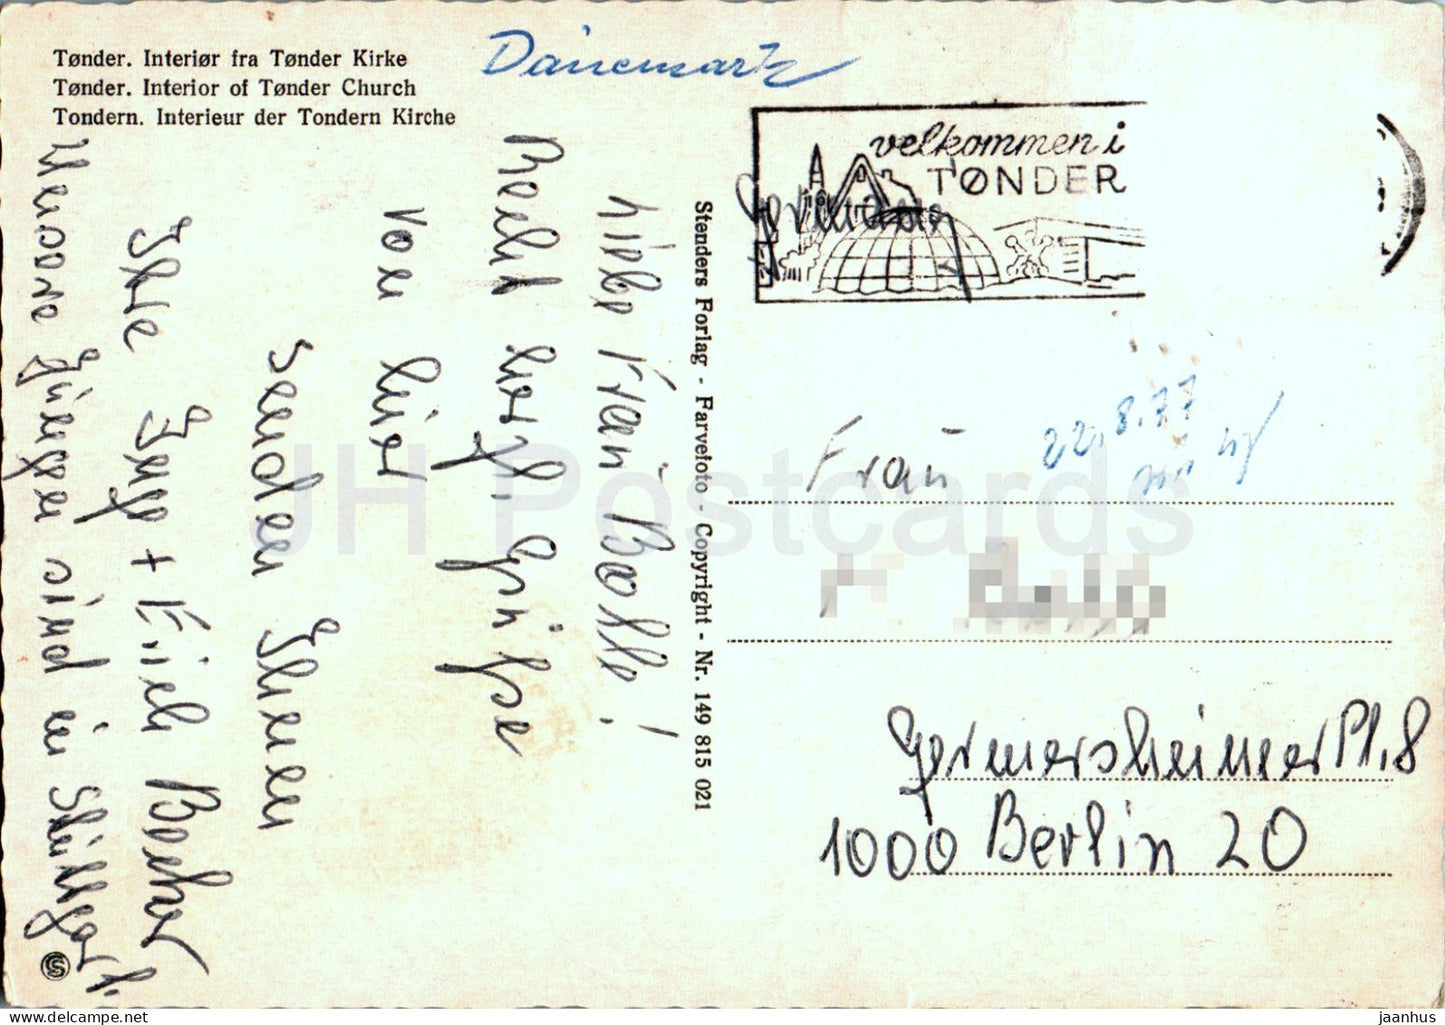 Tønder. Interiør fra Tønder Kirke
Tønder. Interior of Tønder Church
Tondern. Interieur der Tondern Kirche
Dänemark
velkommen i
TØNDER
Liebe Frau Bolle!
Recht herzl. Grüße
von hier
senden Ihnen
Ihre Inge + Erich Becker
Unsere Jungen sind in Stuttgart.
Stenders Forlag - Farvefoto - Copyright - Nr. 149 815 021
22.8.77
Frau
Germersheimer Pl. 8
1000 Berlin 20
JH Postcards
www.delcampe.net
jaanhus